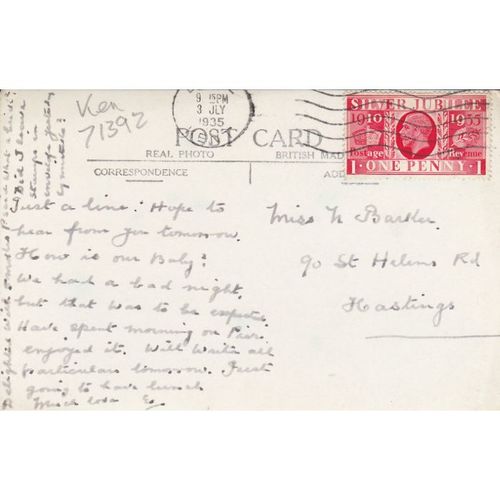 Ken
71392
9 15PM
3 JLY
1935
KENT
SILVER JUBILEE
1910 1935
Postage Revenue
1 ONE PENNY 1
POST CARD
REAL PHOTO
BRITISH MAD
CORRESPONDENCE
AD
Just a line. Hope to
hear from you tomorrow.
How is our Baby?
We had a bad night,
but that was to be expected.
Have spent morning on Pier
enjoyed it. Will write all
particulars tomorrow. Just
going to have lunch
Much love
Miss N Barker
90 St Helens Rd
Hastings
Did I leave
stamps in
by mistake?
Delighted with